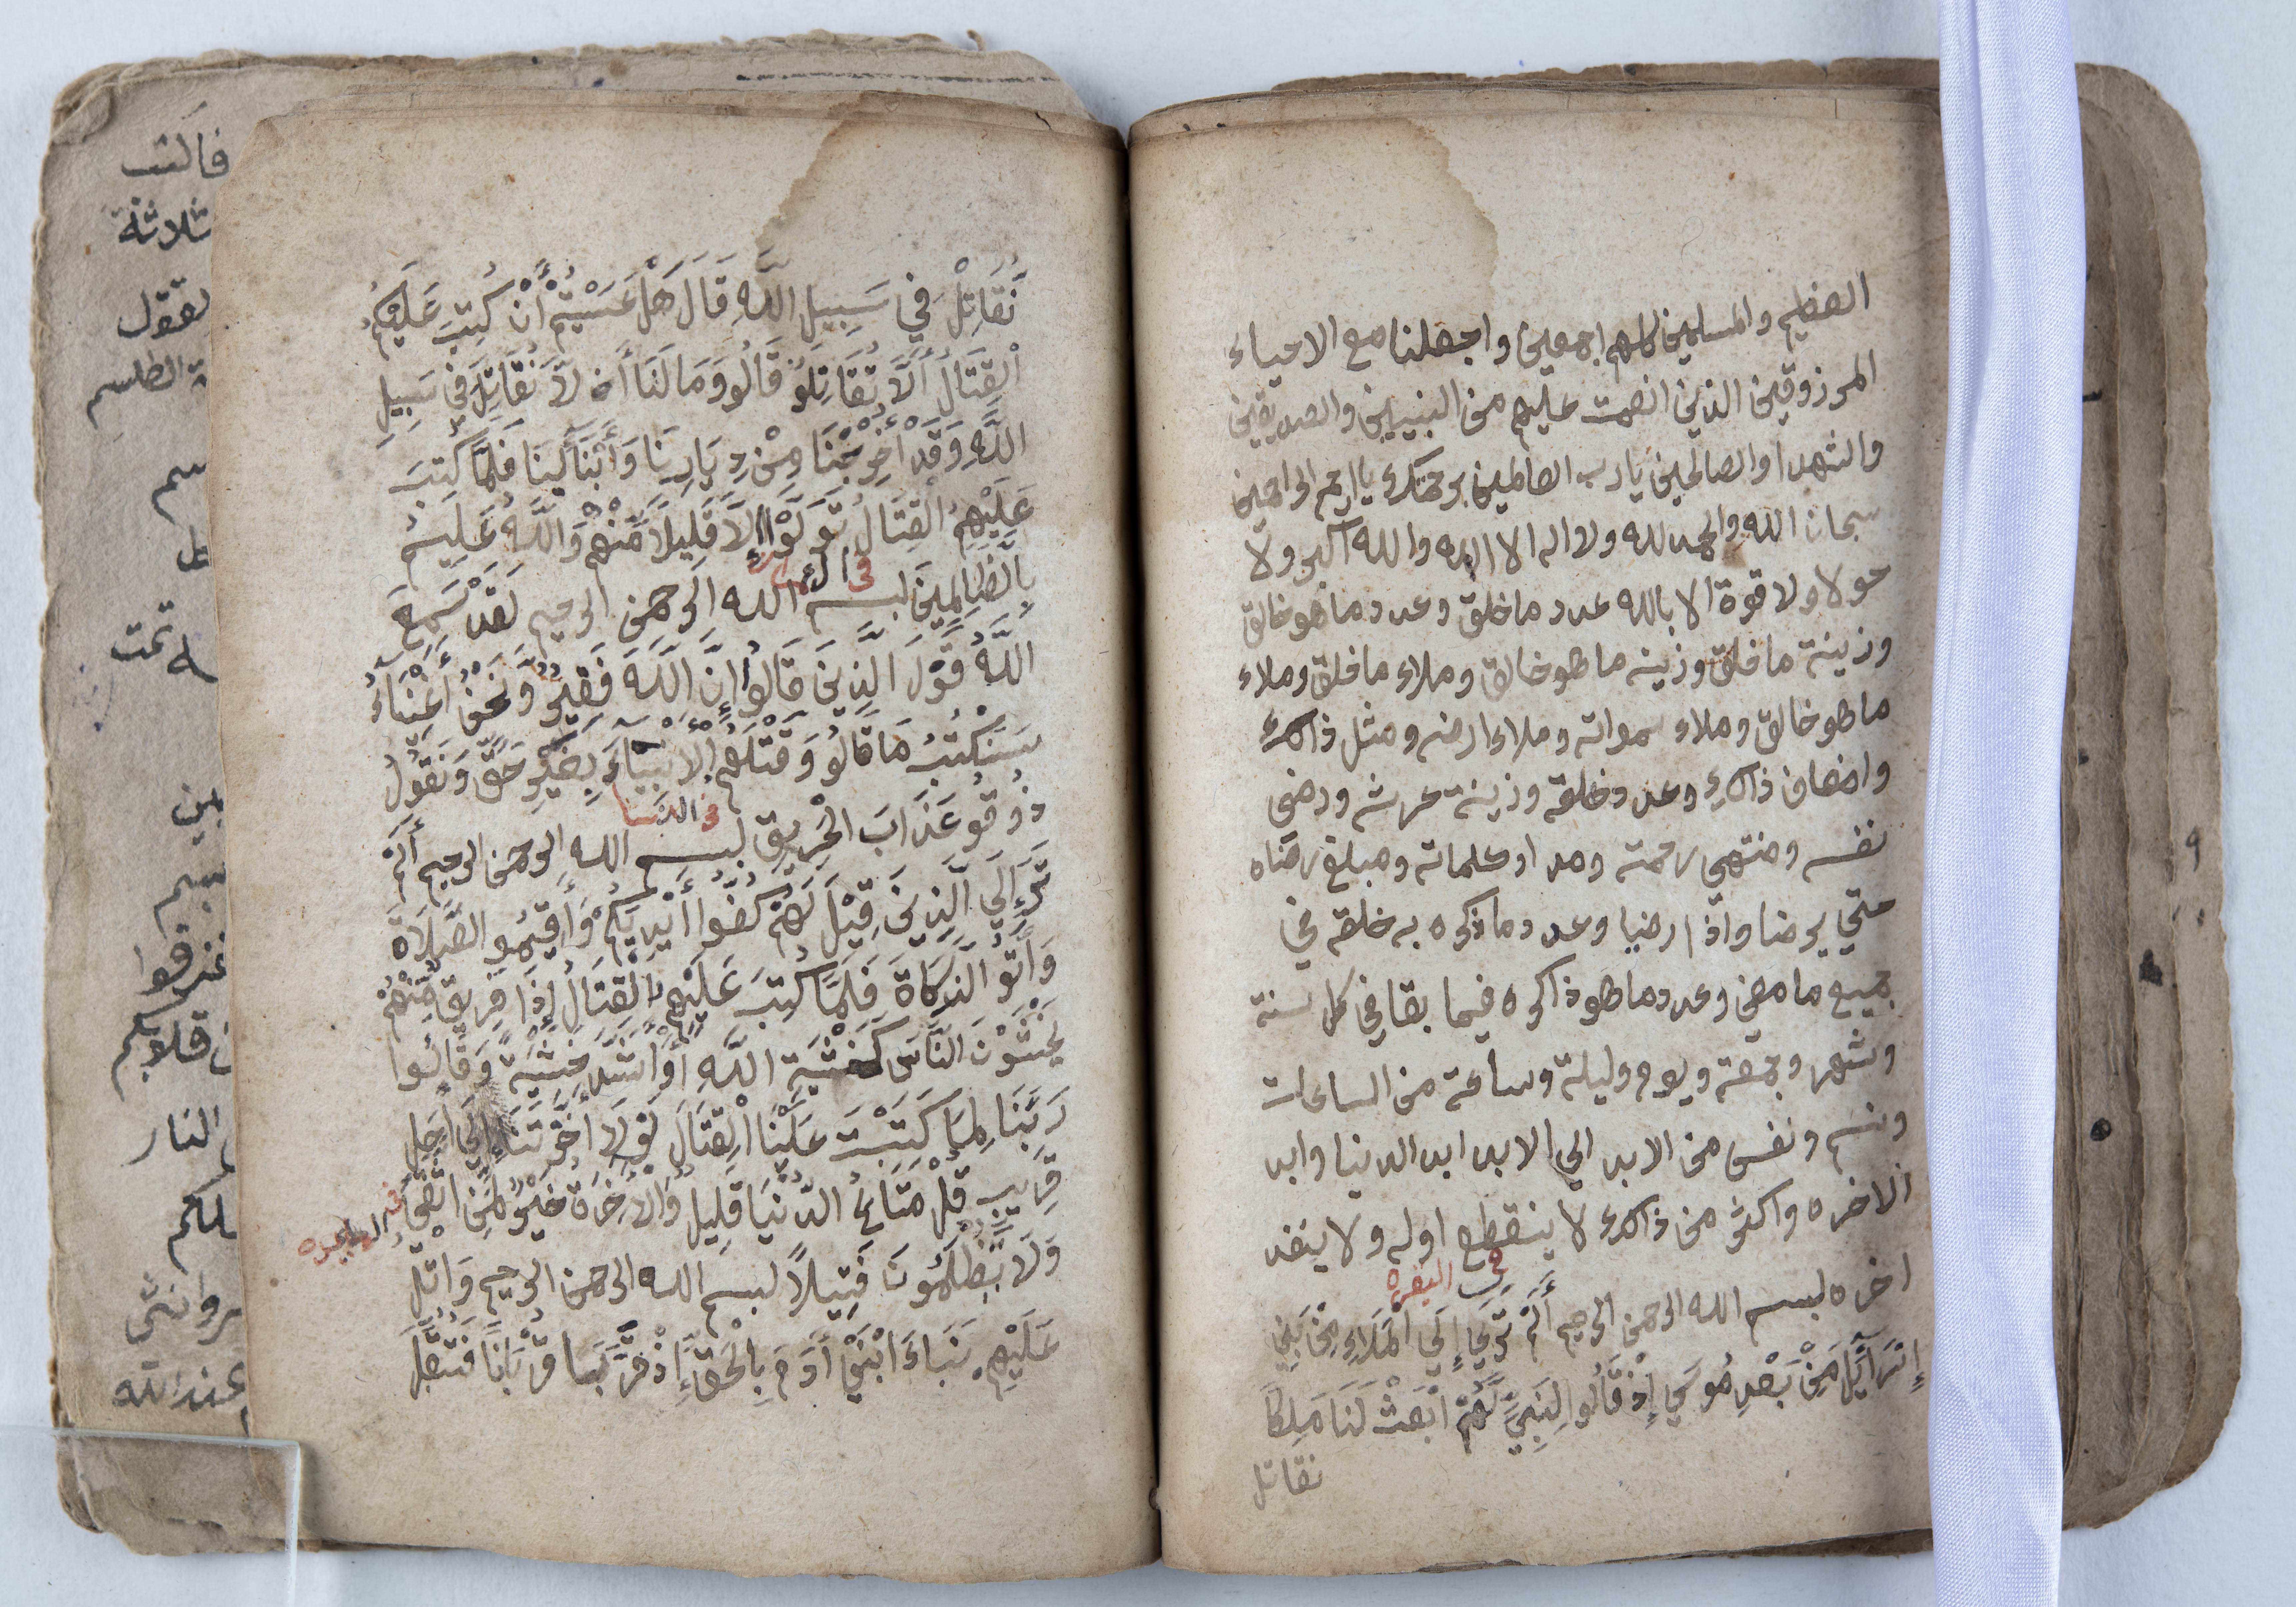 العظيم والمسلمين كلهم اجمعين واجعلنا مع الاحياء
المرزوقين الذين انعمت عليهم من النبيين والصديقين
والشهدا والصالحين يارب العالمين برحمتك ياارحم الراحمين
سبحان الله والحمد لله ولا اله الا الله والله اكبر ولا
حولا ولا قوة الا بالله عدد ما خلق وعدد ما هو خالق
وزينة ما خلق وزينه ما هو خالق وملاء ما خلق وملاء
ما هو خالق وملاء سمواته وملاء ارضه ومثل ذالك
واضعاف ذالك وعدد خلقه وزينة عرشه ورضى
نفسه ومنتهي رحمته ومداد كلماته ومبلغ رضاه
حتي يرضا واذا رضيا وعدد ما ذكره به خلقه في
جميع ما مضي وعدد ما هو ذاكره فيما بقا في كل سنة
وشهر وجمعة ويوم وليلة وساعة من الساعات
ونسم ونفس من الابد الي الابد ابد الدنيا وابد
الاخره واكثر من ذالك لا ينقطع اوله ولا ينفد
في البقره
اخره بسم الله الرحمن الرحيم أَلَمْ تَرَي إِلَي الْمَلَاءِ مِنْ بَنِي
إِسْرَآئِلَ مِنْ بَعْدِ مُوسَي إِذْ قَالُو لِنَبِيٍّ لَّهُمْ ابْعَثْ لَنَا مَلِكًا
نقاتل
نُّقَاتِلْ فِي سَبِيلِ اللَّهِ قَالَ هَلْ عَسَيْتُمْ أَنْ كُتِبَ عَلَيْكُمُ
الْقِتَالُ أَلَّا تُقَاتِلُو قَالُو وَمَا لَنَا أَن لَّا نُقَاتِلَ فِي سَبِيلِ
اللَّهِ وَقَدْ أُخْرِجْنَا مِنْ دِيَارِنَا وَأَبْنَآئِنَا فَلَمَّا كُتِبَ
عَلَيْهِمُ الْقِتَالُ تَوَلَّوْا إِلَّا قَلِيلًا مِّنْهُمْ وَاللَّهُ عَلِيمٌ
بِالظَّالِمِينَ بسم الله الرحمن الرحيم لَقَدْ سَمِعَ
اللَّهُ قَوْلَ الَّذِينَ قَالُوا إِنَّ اللَّهَ فَقِيرٌ وَّنَحْنُ أَغْنِيَآءُ
سَنَكْتُبُ مَا قَالُو وَقَتْلَهُمُ الْأَنْبِيَآءَ بِغَيْرِ حَقٍّ وَنَقُولُ
في النسا
ذُوقُو عَذَابَ الْحَرِيقِ بسم الله الرحمن الرحيم أَلَمْ
تَرَ إِلَي الَّذِينَ قِيلَ لَهُمْ كُفُّوا أَيْدِيَكُمْ وَأَقِيمُو الصَّلَاةَ
وَآتُو الزَّكَاةَ فَلَمَّا كُتِبَ عَلَيْهِمُ الْقِتَالُ إِذَا فَرِيقٌ مِّنْهُمْ
يَخْشَوْنَ النَّاسَ كَخَشْيَةِ اللَّهِ أَوْ أَشَدَّ خَشْيَةً وَقَالُوا
رَبَّنَا لِمَا كَتَبْتَ عَلَيْنَا الْقِتَالَ لَوْلَا أَخَّرْتَنَا إِلَي أَجَلٍ
قَرِيبٍ قُلْ مَتَاعُ الدُّنْيَا قَلِيلٌ وَالْآخِرَةُ خَيْرٌ لِّمَنِ اتَّقَي
في المايده
وَلَا يُظْلَمُونَ فَتِيلًا بسم الله الرحمن الرحيم وَاتْلُ
عَلَيْهِمْ نَبَاءَ ابْنَيْ أَدَمَ بِالْحَقِّ إِذْ قَرَّبَا قُرْبَانًا فَتُقُبِّلَ
فاكتب
ثلاثة
الطلسم
تحت
النار
عند الله